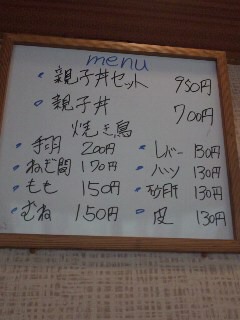 menu
・親子丼セット 950円
・親子丼 700円
焼き鳥
・手羽 200円
・ねぎ間 170円
・もも 150円
・むね 150円
・レバー 130円
・ハツ 130円
・砂肝 130円
・皮 130円